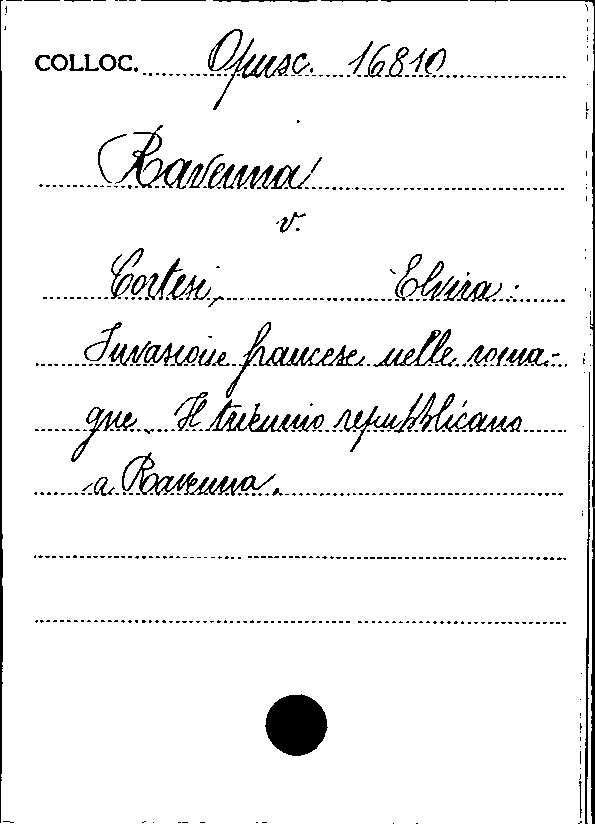 COLLOC. Opusc. 16810
Ravenna
v.
Cortesi, Elvira:
Invasione francese nelle roma-
gne. Il triennio repubblicano
a Ravenna.